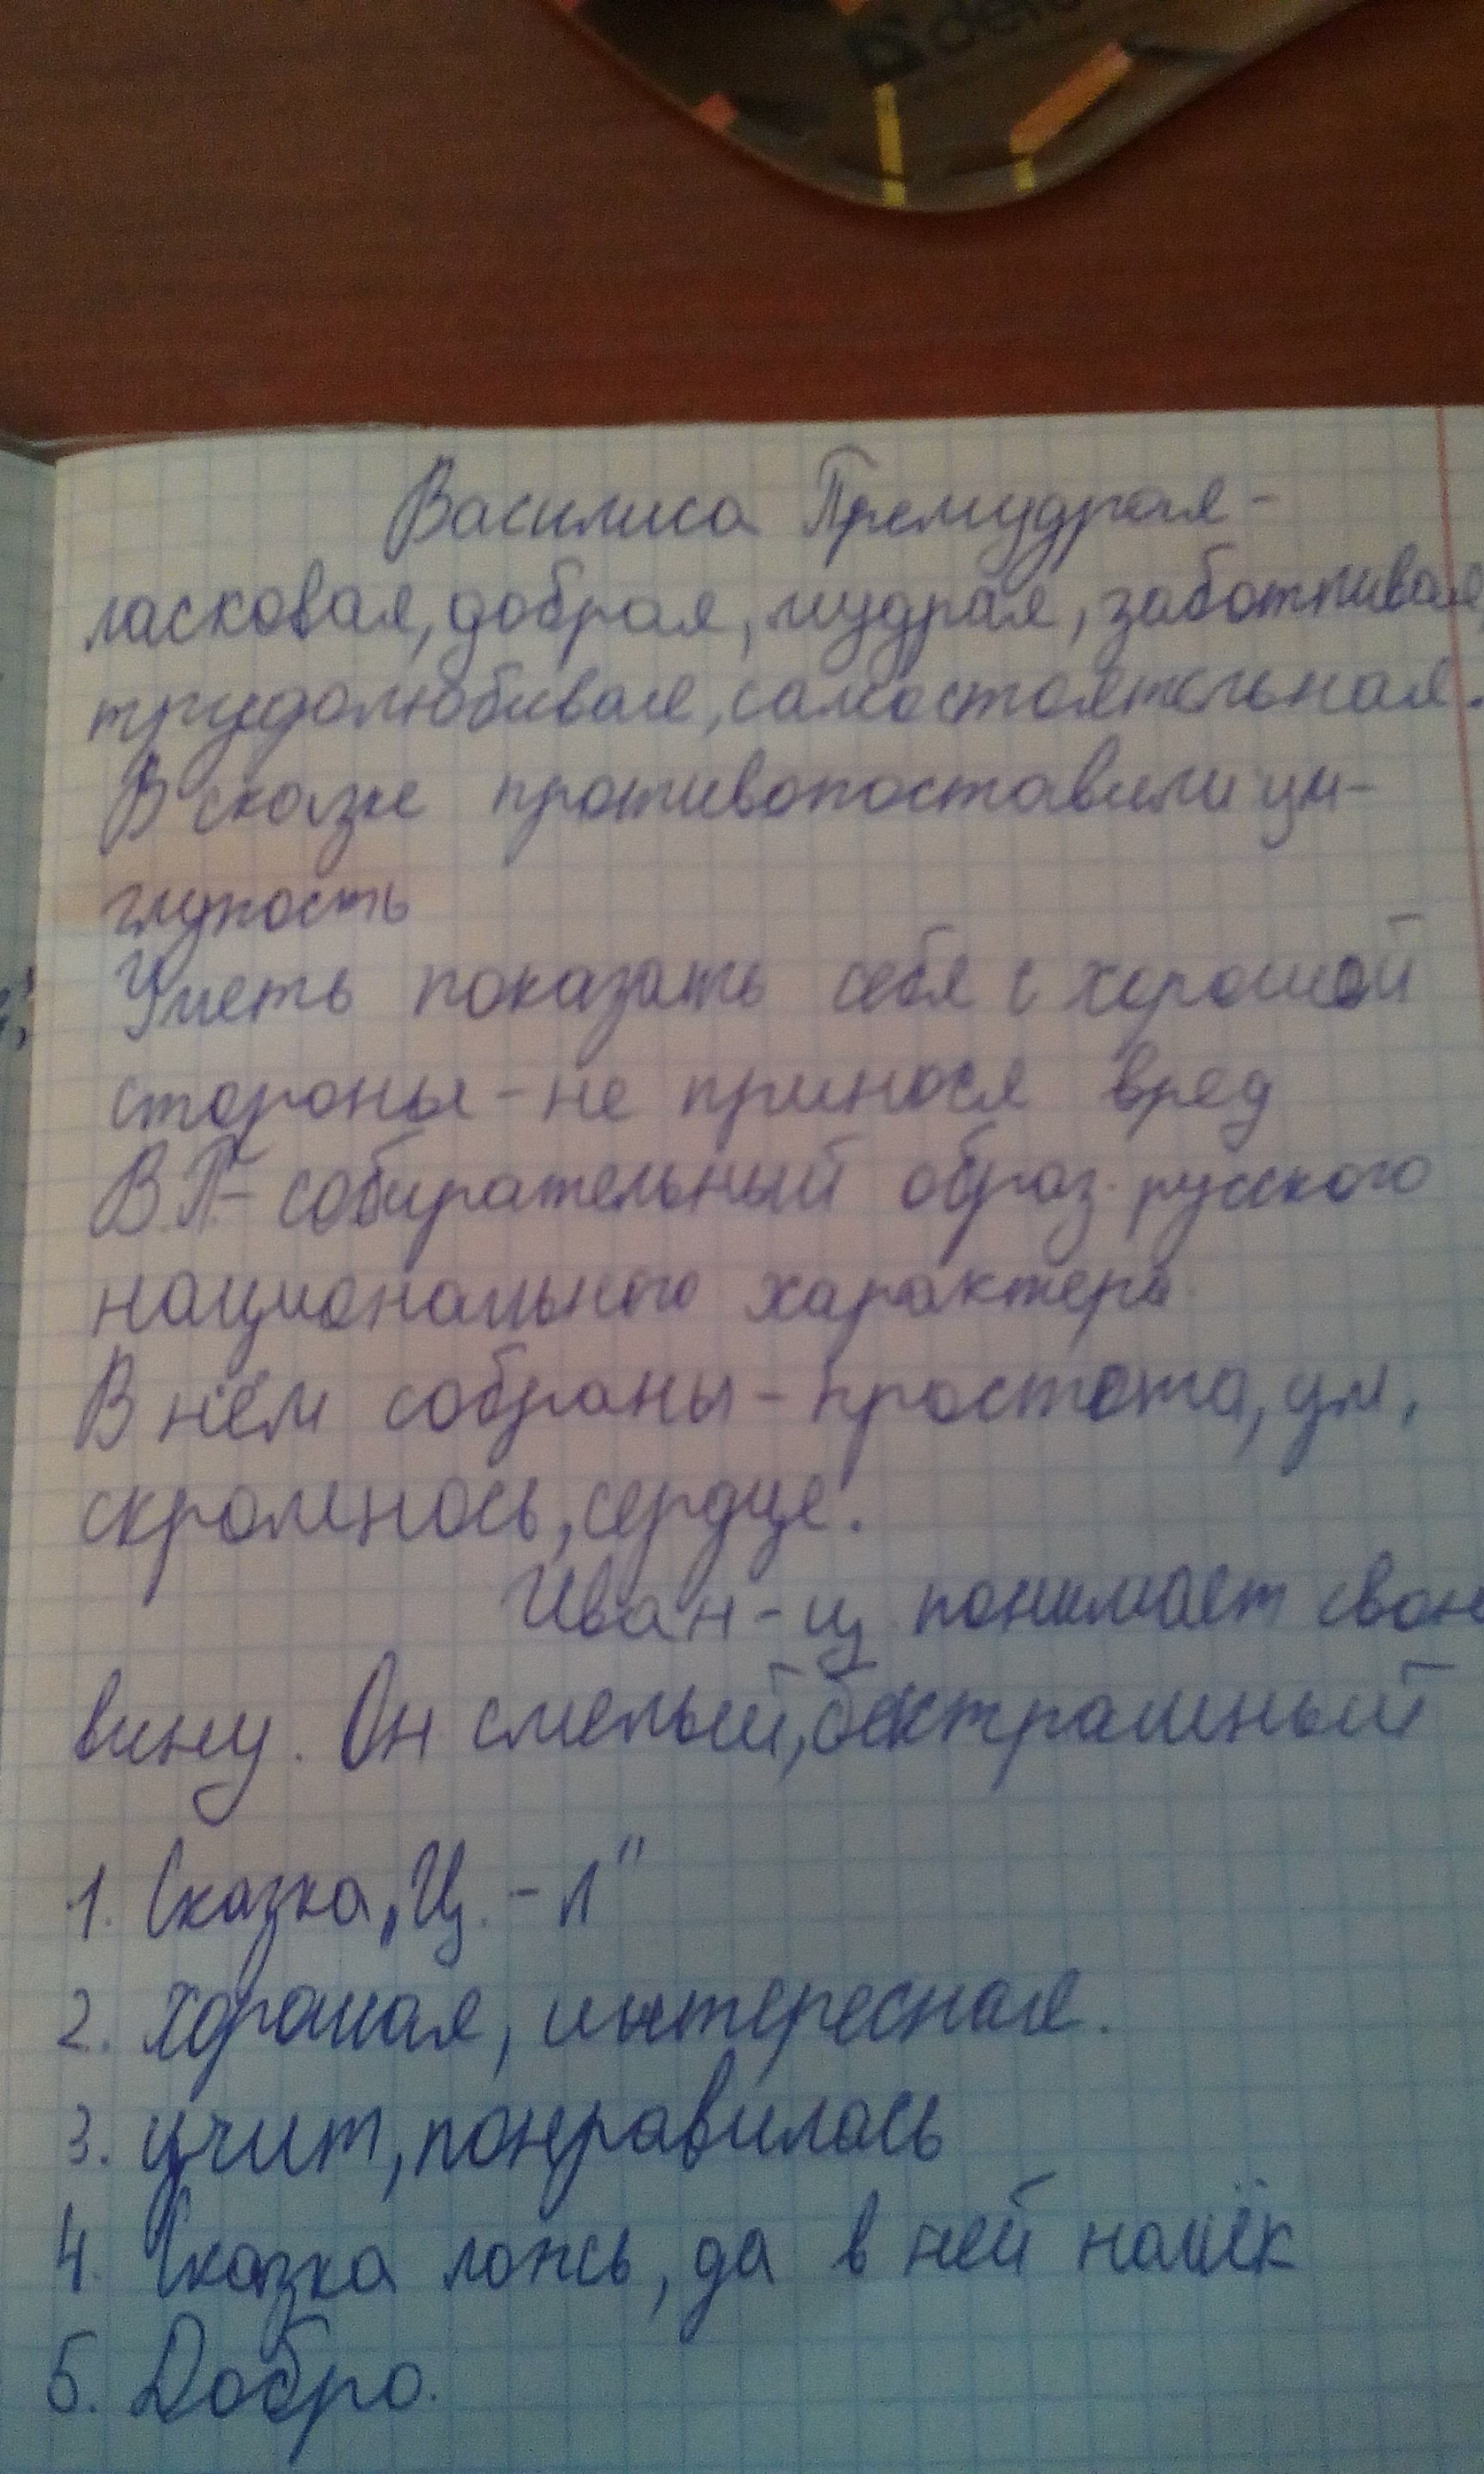 Василиса Премудрая -
ласковая, добрая, мудрая, заботливая,
трудолюбивая, самостоятельная.
В сказке противопоставили ум-
глупость
Уметь показать себя с хорошой
стороны - не принося вред
В.П- собирательный образ русского
национального характера.
В нём собраны - простота, ум,
скромнось, сердце.
Иван - ц понимает свою
вину. Он смелый, бесстрашный
1. Сказка „Ц. - Л"
2. Хорошая, интересная.
3. учит, понравилась
4. Сказка ложь, да в ней намёк
5. Добро.